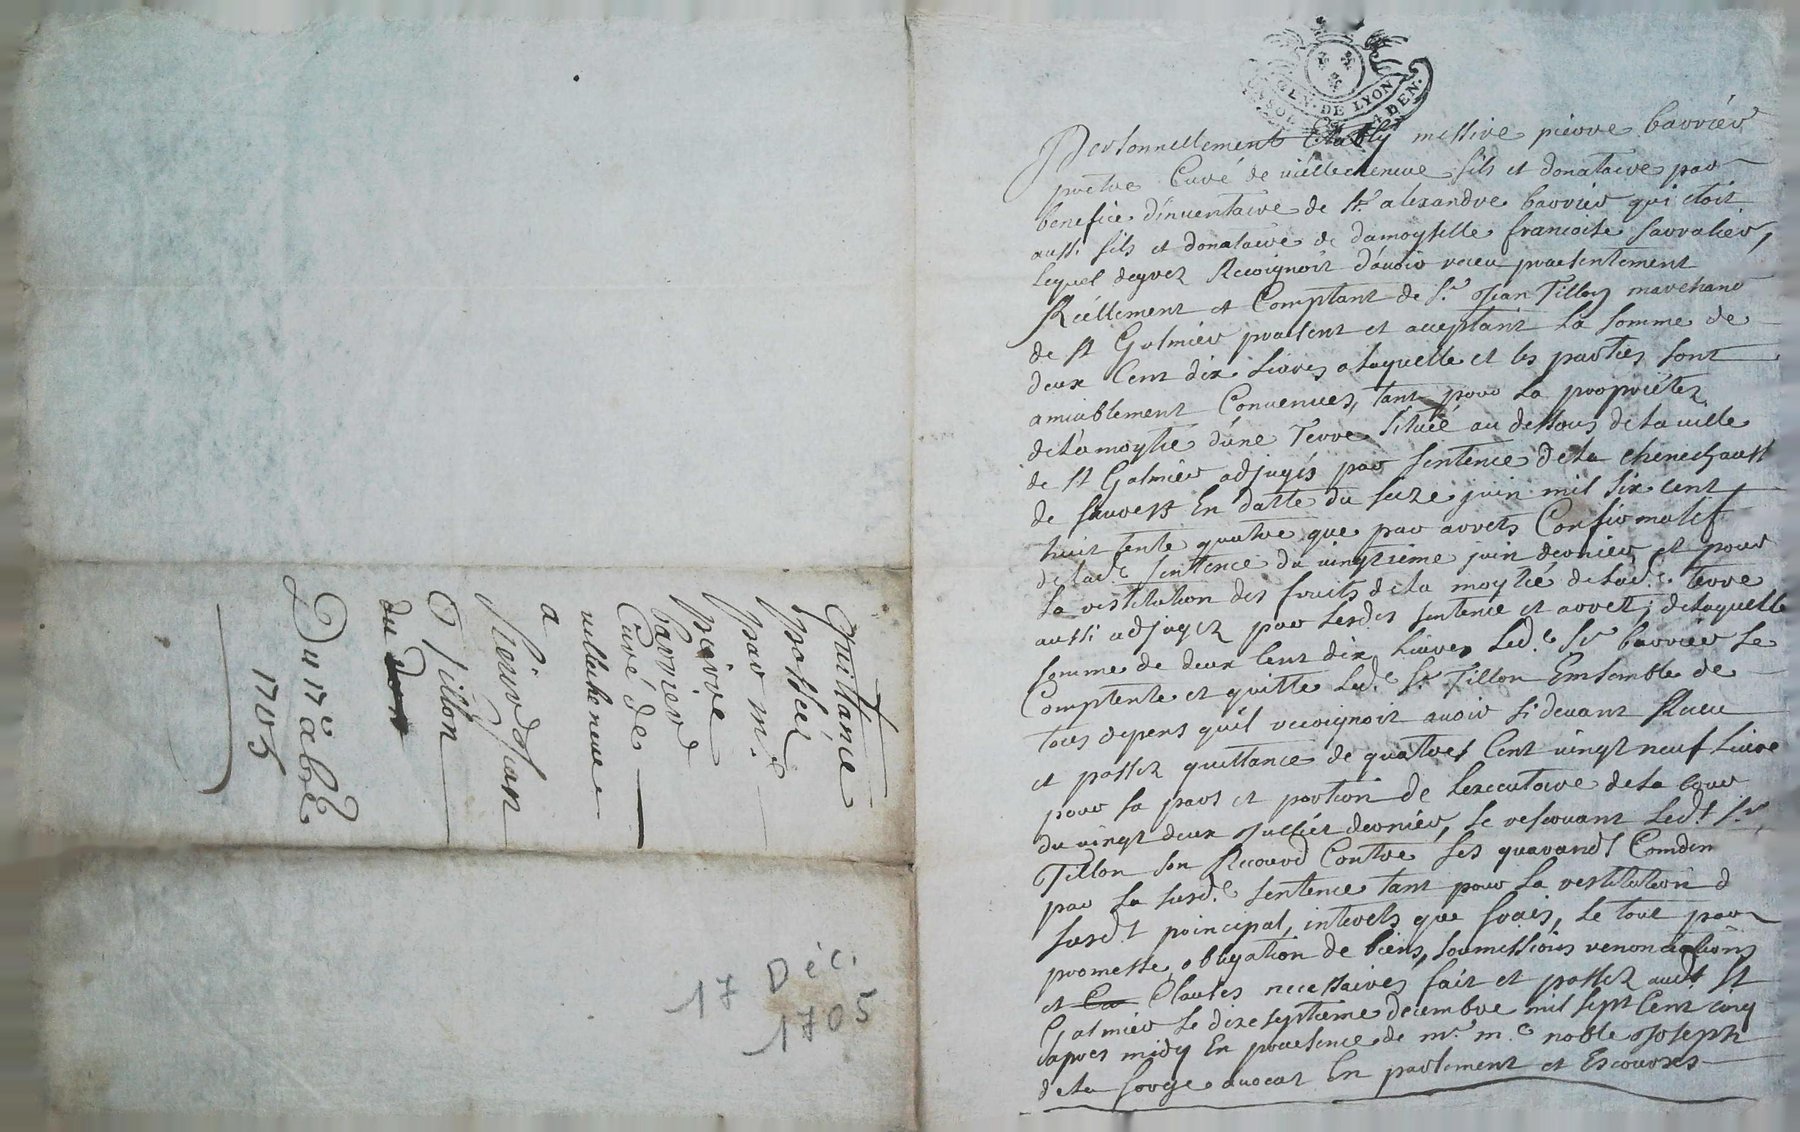 GEN. DE LYON
DEN.
Personnellement Estably messire pierre barrier
prestre Curé de villecheneve fils et donataire par
benefice d'inventaire de Sr alexandre barrier qui etoit
aussi fils et donataire de damoyselle francoise
lequel degrez Recoignoit d'avoir receu presentement
Réellement et Comptant de Sr Jean Tillon marchand
de st Galmier present et acceptant la somme de
deux Cent dix Livres a laquelle et les parties sont
amiablement Convenues, tant pour la proprietez
de la moytie d'une Terre Situéé au dessous de la ville
de st Galmier adjugés par sentence de la
de En datte du seize juin mil six cent
huit tente quatre que par arrets Confirmatif
de lade sentence du vingtieme juin dernier et pour
la restitution des fruits de la moytié de lade terre
aussi adjugez par lesdes sentence et arrets, de laquelle
somme de deux Cent dix Livres Led. Sr barrier se
Comptente et quitte Led. Sr Tillon Emsemble de
tous depens qu'il recoignoit avoir si devant Receu
et passez quittance de quatre Cent vingt neuf Livre
pour sa pars et portion de L'executoire de la cour
du vingt deux Juillet dernier, se reservant Ledt Sr
Tillon son Recourd Contre ses garands Comden
par La susd.e sentence tant pour la restitution d
susd.t principal, interets que frais, Le tout par
promesse, obligation de biens, soumissions renonciations
et Clauses necessaires fait et passez audt St
Galmier Le dixe septieme decembre mil sept Cent cinq
apres midy En presence de mr. m.e noble Joseph
de la forge avocat En parlement et Escourses
Quittance
passéé
par m.e
pierre
barrier
Curé de
villecheneve
a
Sieur Jean
Tillon
du
Du 17e xbre
1705
17 Déc.
1705